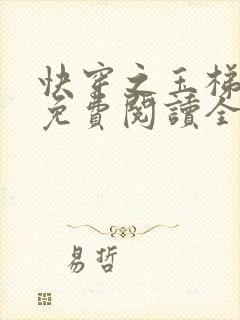 快穿之玉梯
免費閱讀全
易哲